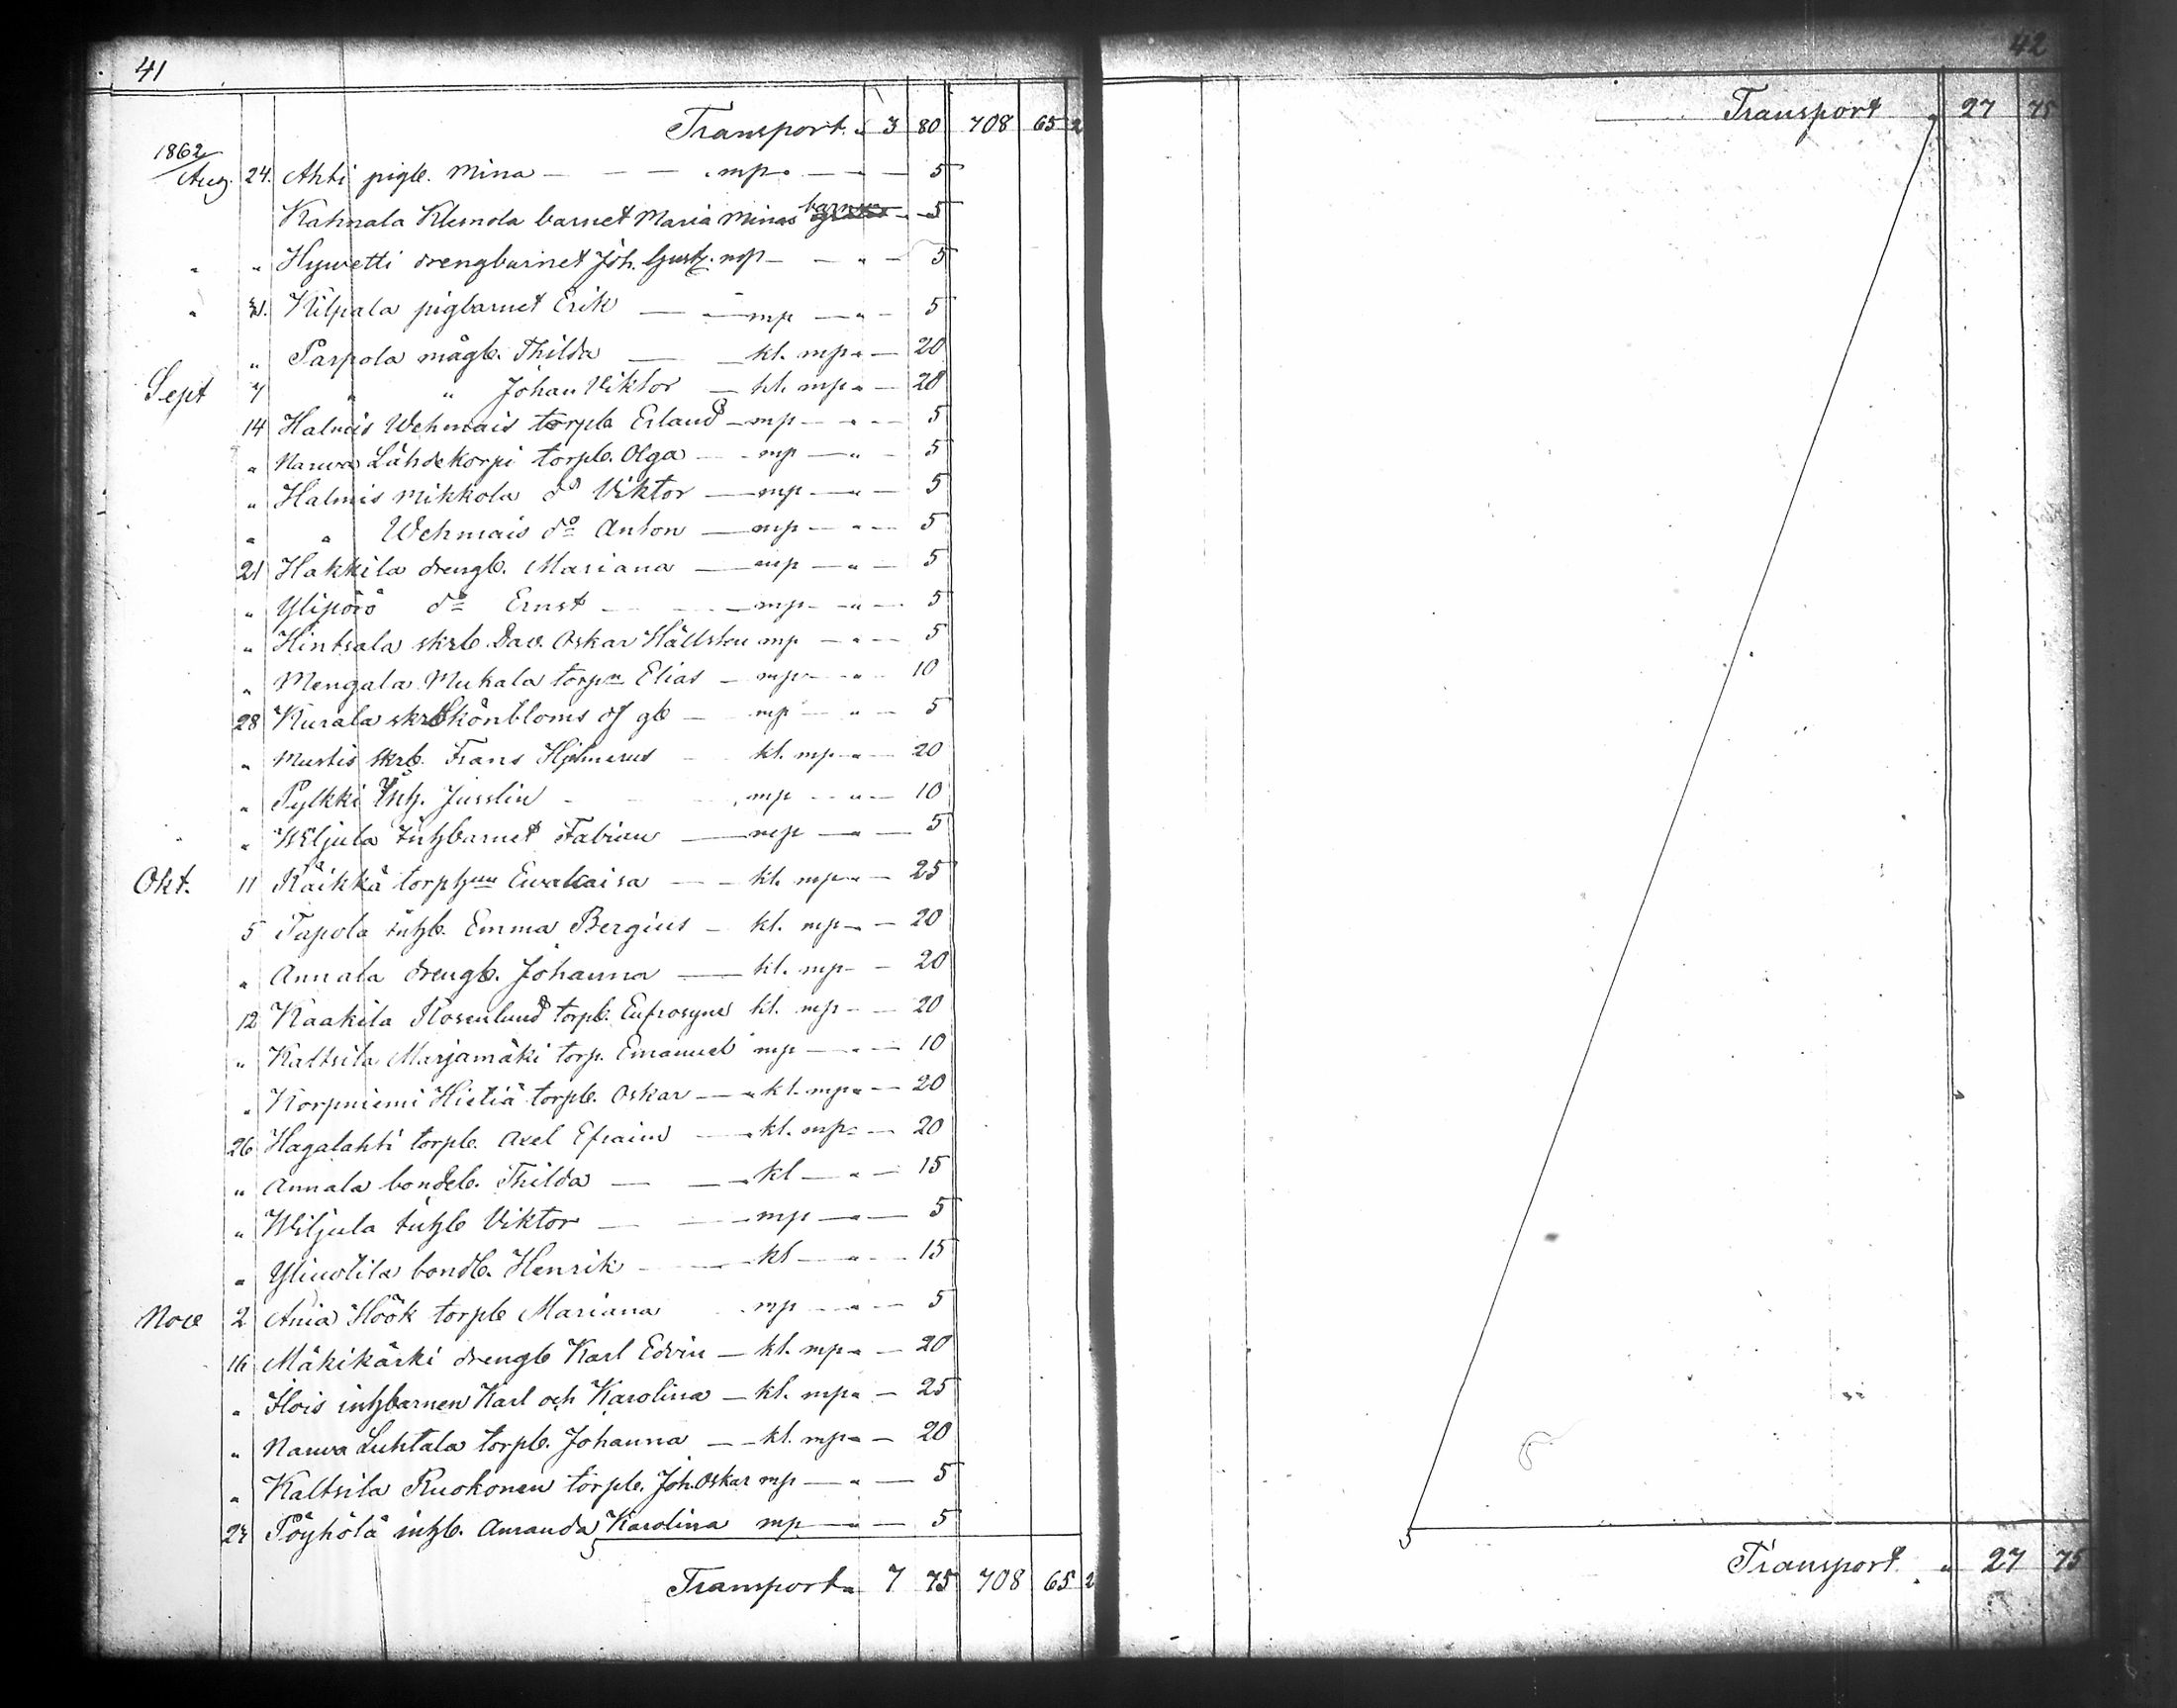 41
Transport " 3 80 708 65 2
1862
Aug. 24. Ahti pigb. Mina — — — mp. — — 5
Kahnala Klemola barnet Maria Minas barn — 5
" " Hywetti drengbarnet Joh. Gust. mp — " — 5
" 31. Kilpala pigbarnet Erik — — mp — " — 5
" Parpola mågb. Thilda — — kl. mp " — 20
Sept 7 " " Johan Viktor — kl. mp " — 20
14 Halmis Wehmais torpb Erland — mp — " — 5
" Narwa Lähdekorpi torpb. Olga — mp — " — 5
" Halmis Mikkola do Viktor — mp — " — 5
" " Wehmais do Anton — mp — " — 5
21 Hakkila drengb. Mariana — mp — " — 5
" Ylipörö do Ernst — — mp — " — 5
" Hintsala skrb Dav. Oskar Hällsten mp — " — 5
" Mengala Mukala torpn Elias — mp — " 10
28 Kurala skrb Skönbloms df gb — mp — " — 5
" Mustis skrb. Frans Hjelmerus kl. mp — " — 20
" Pylkki Jusslin — mp — " — 10
" Wiljula inhbarnet Fabian — mp — " — 5
Okt. 11 Räikkä Ewa Kaisa — kl. mp " — 25
5 Tapola inhb. Emma Bergius — kl. mp " — 20
" Annala drengb. Johanna — kl. mp — 20
12 Kaakila Rosenlund torpb. Eufrosyne kl. mp — 20
" Kaltsila Marjamäki torp. Emanuel mp — " — 10
" Korpniemi Hietiä torpb. Oskar — kl. mp " — 20
26 Hagalahti torpb. Axel Efraim — kl. mp " — 20
" Annala bondeb. Thilda — — kl — " — 15
" Wiljula inhb Viktor — — mp — " — 5
" Ylinotila bondb. Henrik — — kl — " — 15
Nov 2 Ania Höök torpb Mariana mp — " — 5
16 Mäkikärki drengb Karl Edvin — kl. mp " — 20
" Hois inhbarnen Karl och Karolina — kl. mp " — 25
" Narwa Luhtala torpb. Johanna — kl. mp " — 20
" Kaltsila Ruokonen torpb. Joh. Oskar mp — " — 5
23 Pöyhölä inhb. Amanda Karolina mp — " — 5
Transport " 7 75 708 65 2
42
Transport " 27 75
Transport " 27 75